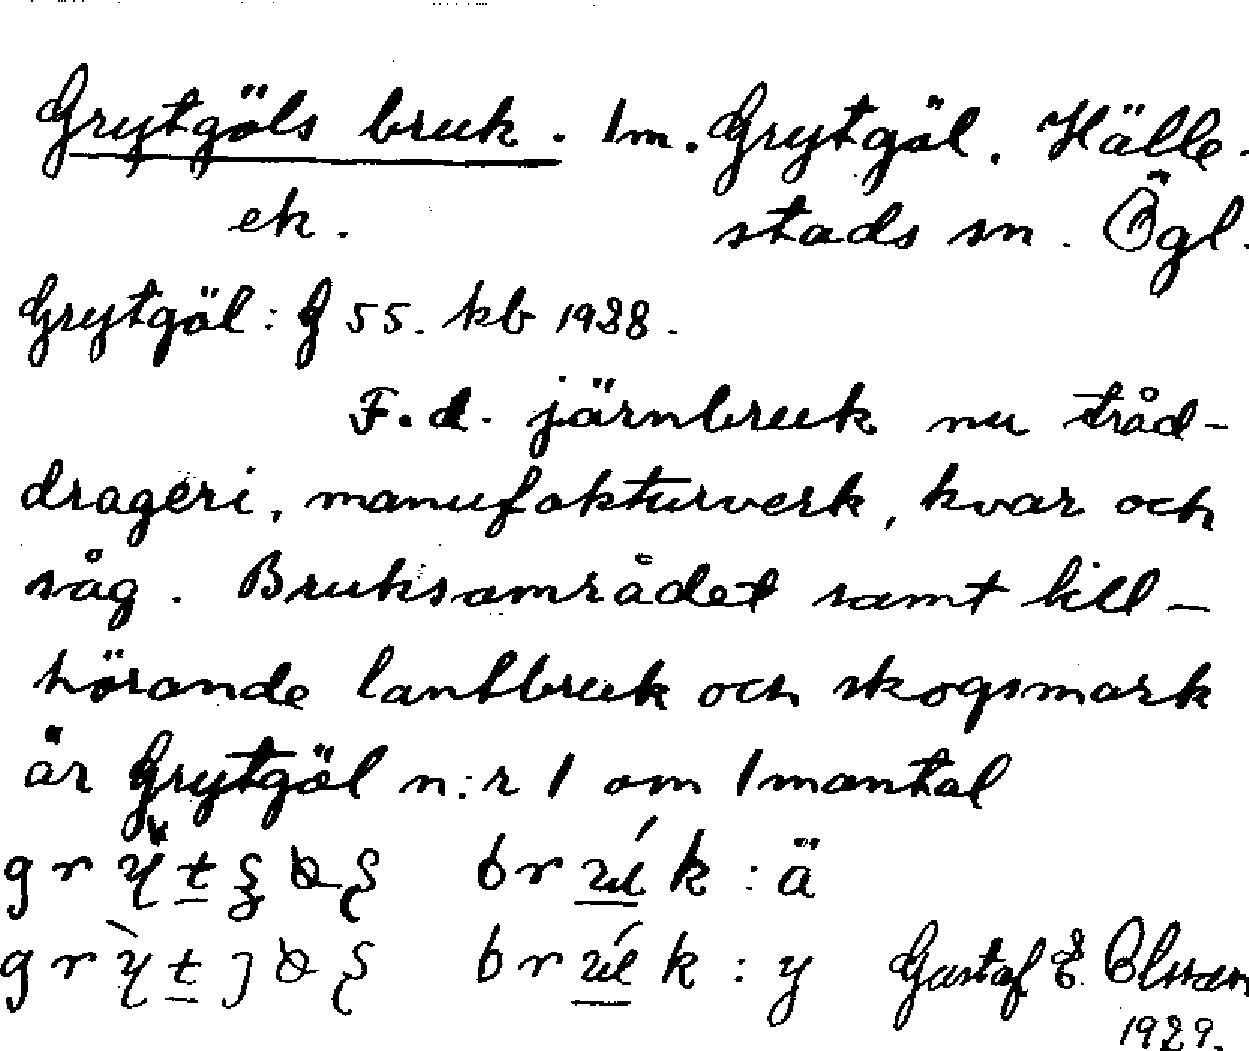 Grytgöls bruk. 1 m. Grytgöl. Hälle-
ek. stads sn. Ögl.
Grytgöl: G 55. kb 1928.
F.d. järnbruk nu tråd-
drageri, manufakturverk, kvar och
såg. Bruksområdet samt till-
hörande lantbruk och skogsmark
är Grytgöl n:r 1 om 1 mantal
k : ä
k : y Gustaf E. Olsson
1929.